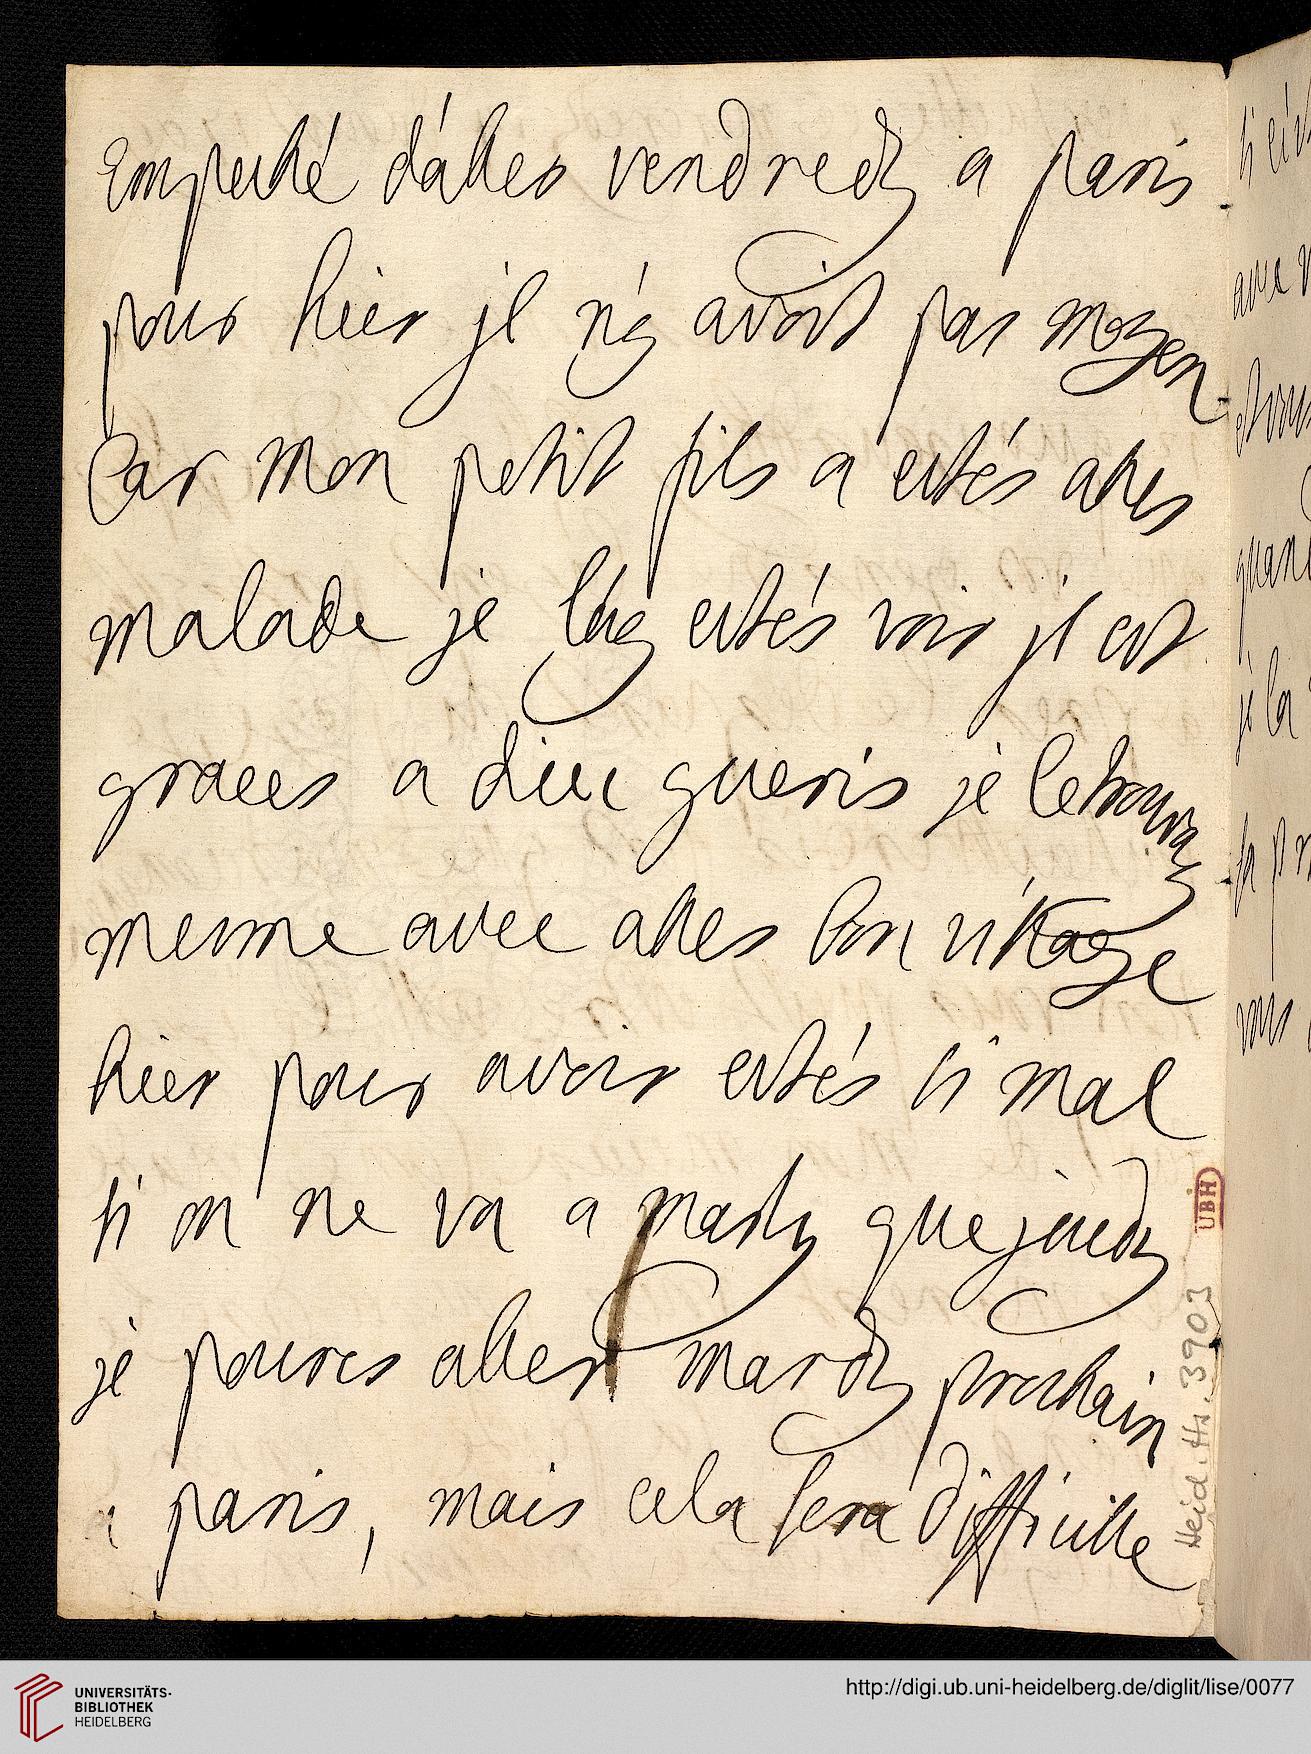 Empeché d'aller vendredy a paris
pour hier jl n'y avoit pas moyen
Car mon petit fils a estés asses
malade je l'ay estés voir jl est
graces a dieu gueris je le trouvay
mesme avec asses bon visage
hier pour avoir estés si mal
si on ne va a marly que jeudy
je poures aller mardy prochain
a paris, mais cela sera difficille
UBH
Heid. Hs. 3903
si
avec
quand
je la
vous
UNIVERSITÄTS-
BIBLIOTHEK
HEIDELBERG
http://digi.ub.uni-heidelberg.de/diglit/lise/0077